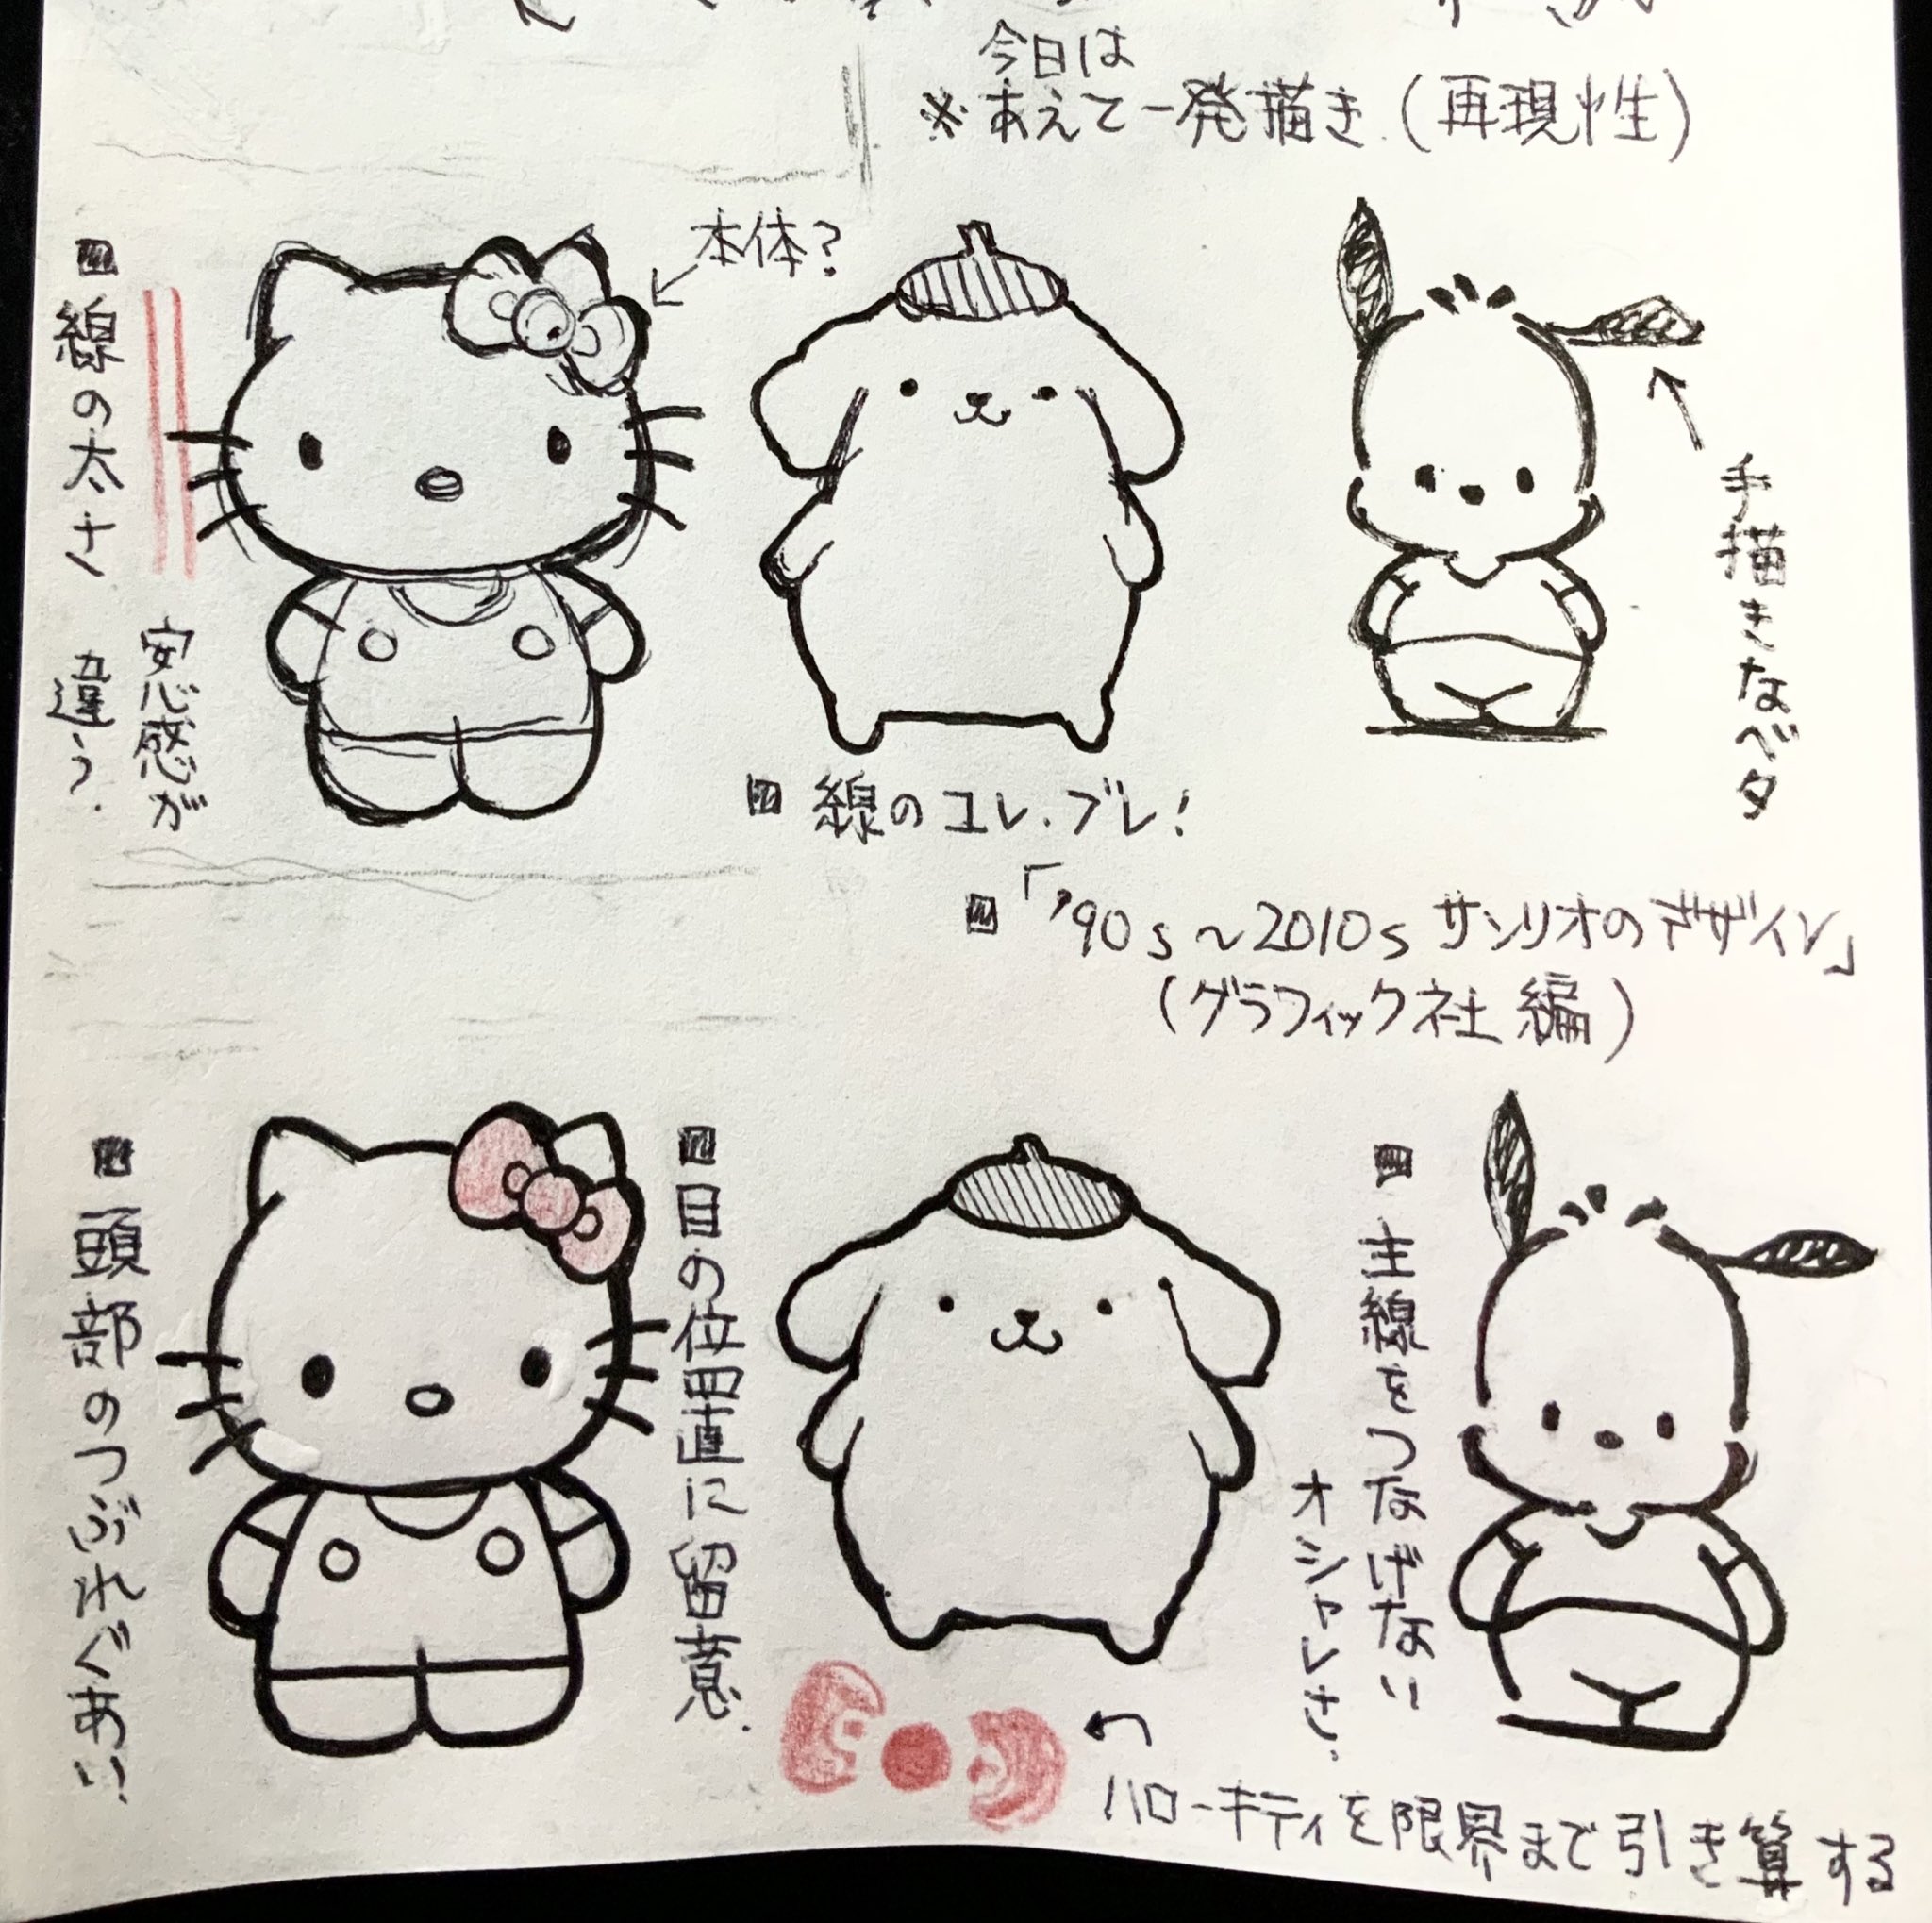 今日は
※あえて一発描き（再現性）
本体？
線の太さ
安心感が
違う.
手描きなベタ
線のユレ.ブレ！
「'90s～2010sサンリオのデザイン」
（グラフィック社編）
頭部のつぶれぐあい
目の位置に留意.
主線をつなげない
オシャレさ.
ハローキティを限界まで引き算する